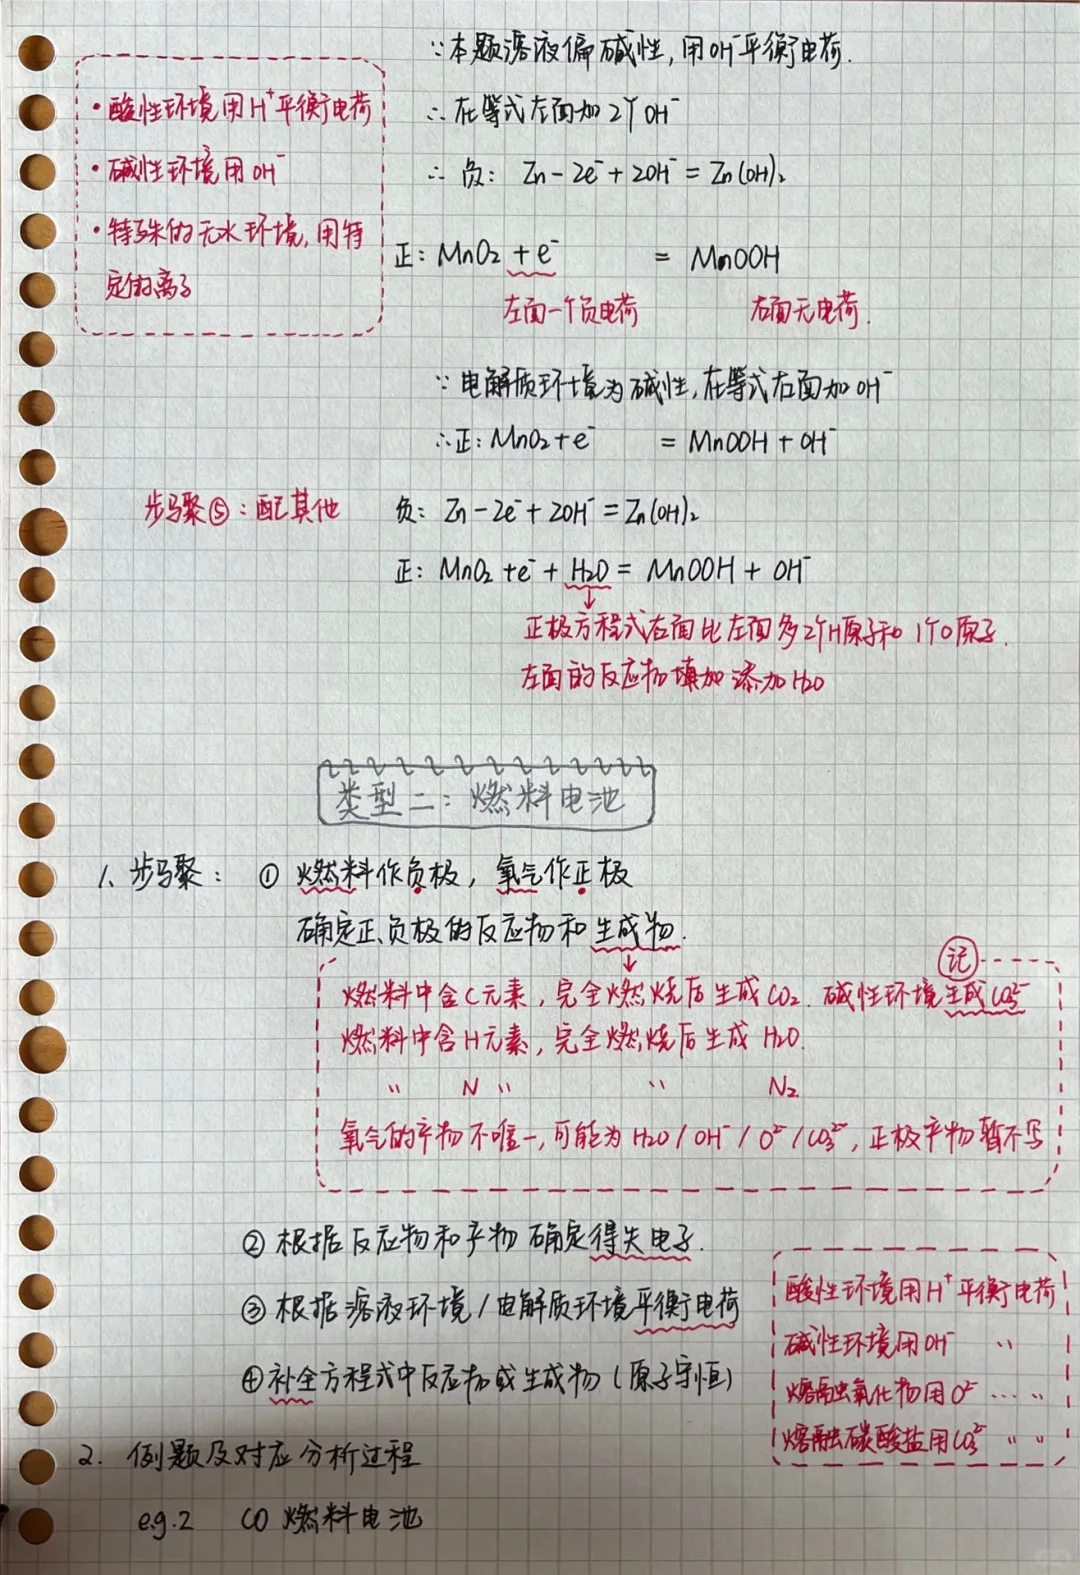 ∵本题溶液偏碱性,用OH⁻平衡电荷.
·酸性环境用H⁺平衡电荷
·碱性环境用OH⁻
·特殊的无水环境,用特
定的离子
∴在等式左面加2个OH⁻
∴负: Zn-2e⁻+2OH⁻=Zn(OH)₂
正: MnO₂+e⁻ = MnOOH
左面一个负电荷 右面无电荷.
∵电解质环境为碱性,在等式右面加OH⁻
∴正: MnO₂+e⁻ = MnOOH+OH⁻
步骤⑤:配其他
负: Zn-2e⁻+2OH⁻=Zn(OH)₂
正: MnO₂+e⁻+H₂O=MnOOH+OH⁻
正极方程式右面比左面多2个H原子和1个O原子.
左面的反应物填加添加H₂O
类型二:燃料电池
1、步骤: ①燃料作负极,氧气作正极
确定正、负极的反应物和生成物.
记
燃料中含C元素,完全燃烧后生成CO₂.碱性环境生成CO₃²⁻
燃料中含H元素,完全燃烧后生成H₂O.
〃 N 〃 〃 N₂
氧气的产物不唯一,可能为H₂O/OH⁻/O²⁻/CO₃²⁻,正极产物暂不写
②根据反应物和产物确定得失电子.
③根据溶液环境/电解质环境平衡电荷
④补全方程式中反应物或生成物(原子守恒)
酸性环境用H⁺平衡电荷
碱性环境用OH⁻ 〃
熔融氧化物用O²⁻ …. 〃
熔融碳酸盐用CO₃²⁻ 〃 〃
2. 例题及对应分析过程
e.g.2 CO燃料电池